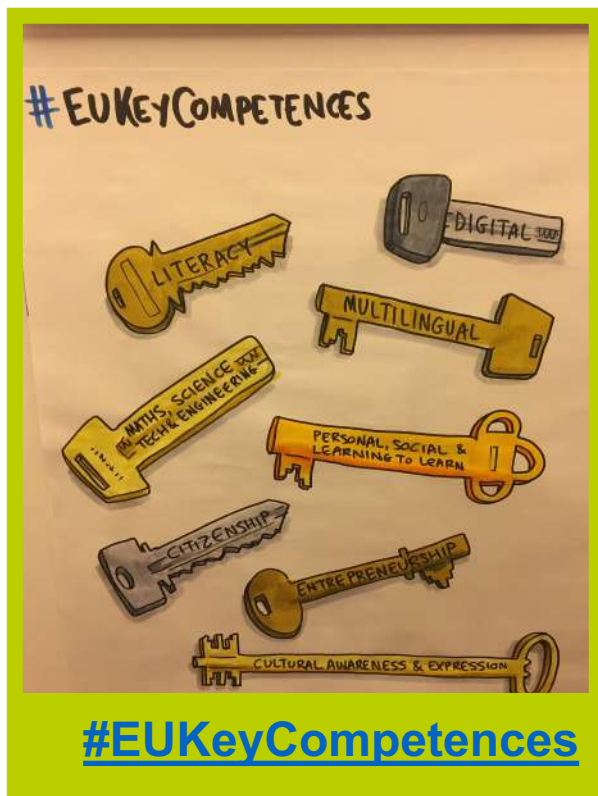 #EUKEYCOMPETENCES
DIGITAL
LITERACY
MULTILINGUAL
MATHS, SCIENCE
TECH & ENGINEERING
PERSONAL, SOCIAL &
LEARNING TO LEARN
CITIZENSHIP
ENTREPRENEURSHIP
CULTURAL AWARENESS & EXPRESSION
#EUKeyCompetences